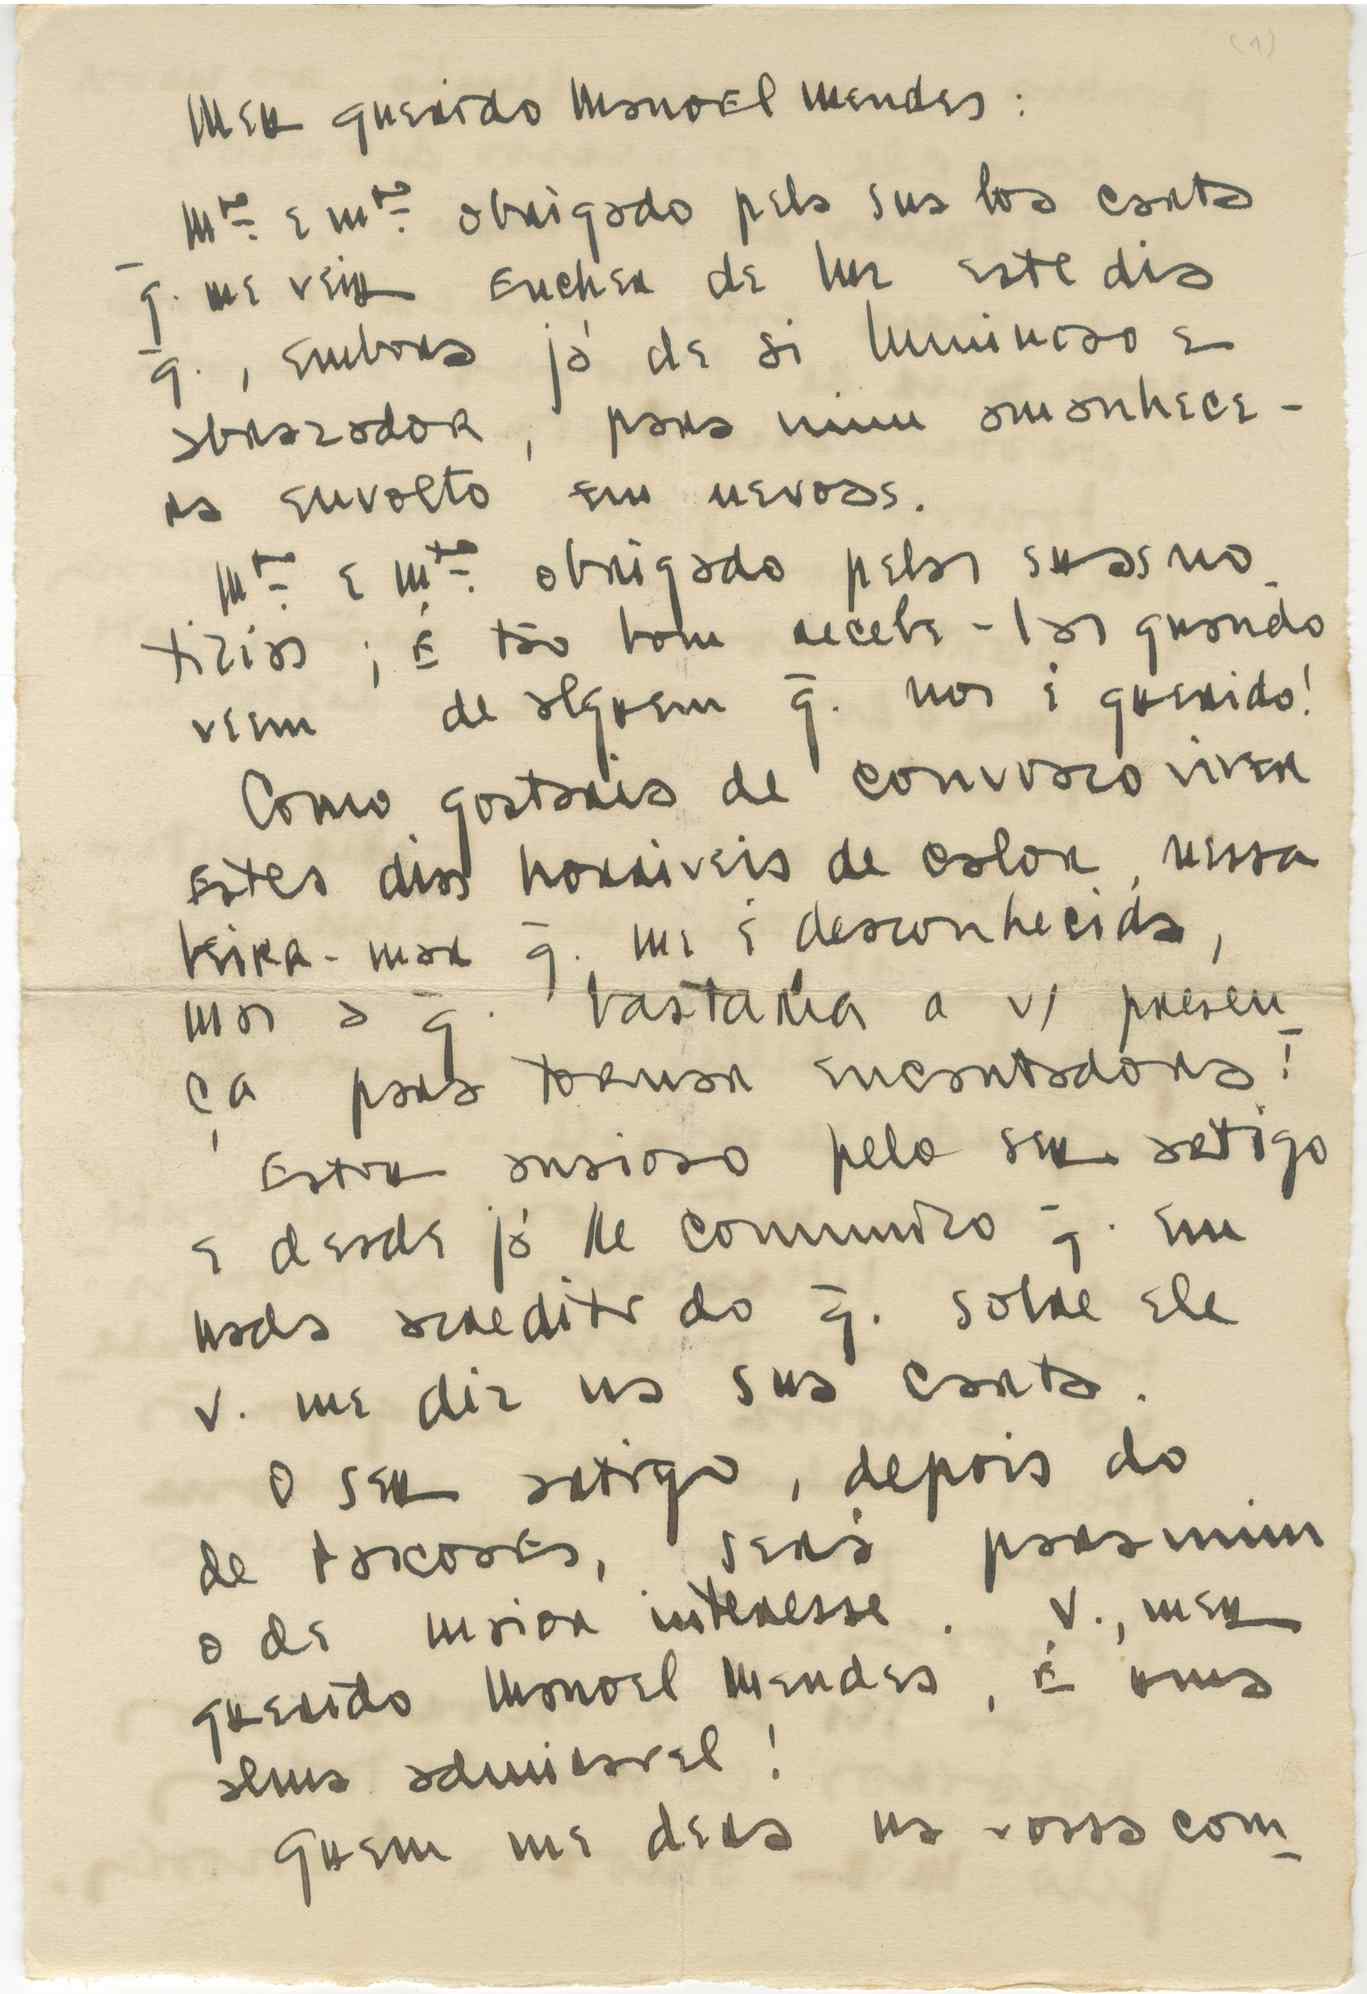 (1)
Meu querido Manoel Mendes:
Mto. e mto. obrigado pela sua boa carta
q̄. me veiu encher de luz este dia
q̄., embora já de si luminoso e
abrazador, para mim amanhece-
ra envolto em nevoas.
Mto. e mto. obrigado pelas suas no-
ticias; é tão bom recebe-las quando
veem de alguem q̄. nos é querido!
Como gostaria de convosco viver
estes dias horriveis de calor, nessa
beira-mar q̄. me é desconhecida,
mas a q̄. bastaria a v/ presen-
ça para tornar encantadora!
Estou ansioso pelo seu artigo
e desde já lhe comunico q̄. em
nada acredito do q̄. sobre ele
v. me diz na sua carta.
O seu artigo, depois do
de Pascoaes, será para mim
o de maior interesse. V., meu
querido Manoel Mendes, é uma
alma admiravel!
Quem me dera na vossa com-